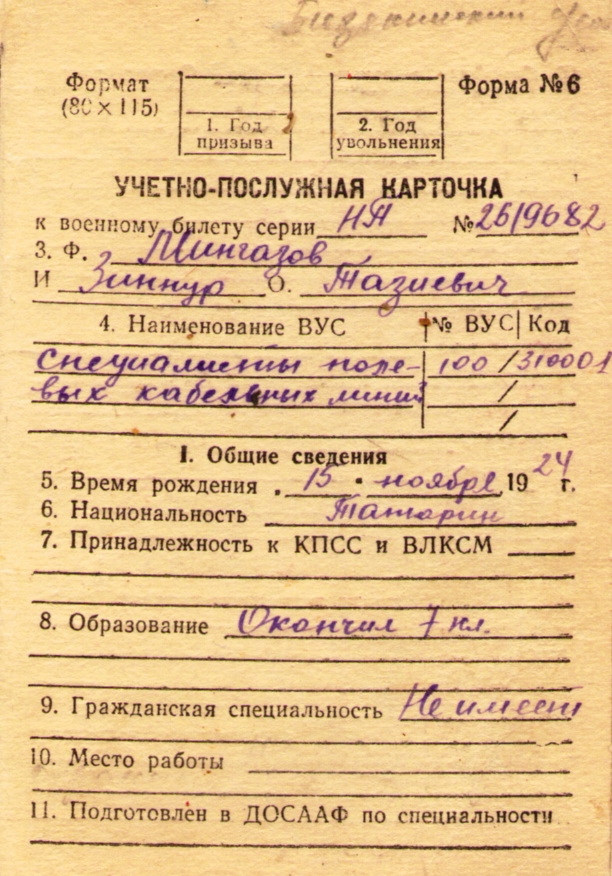 Формат
(80 × 115)
Форма №6
1. Год призыва
2. Год увольнения
УЧЕТНО-ПОСЛУЖНАЯ КАРТОЧКА
к военному билету серии НЯ №2619682
3. Ф. Мингазов
И Зиннур О. Тазиевич
4. Наименование ВУС № ВУС Код
специалисты поле- 100 / 310001
вых кабельных линий /
/
I. Общие сведения
5. Время рождения „ 15 " ноября 1924 г.
6. Национальность Татарин
7. Принадлежность к КПСС и ВЛКСМ
8. Образование Окончил 7 кл.
9. Гражданская специальность Не имеет
10. Место работы
11. Подготовлен в ДОСААФ по специальности